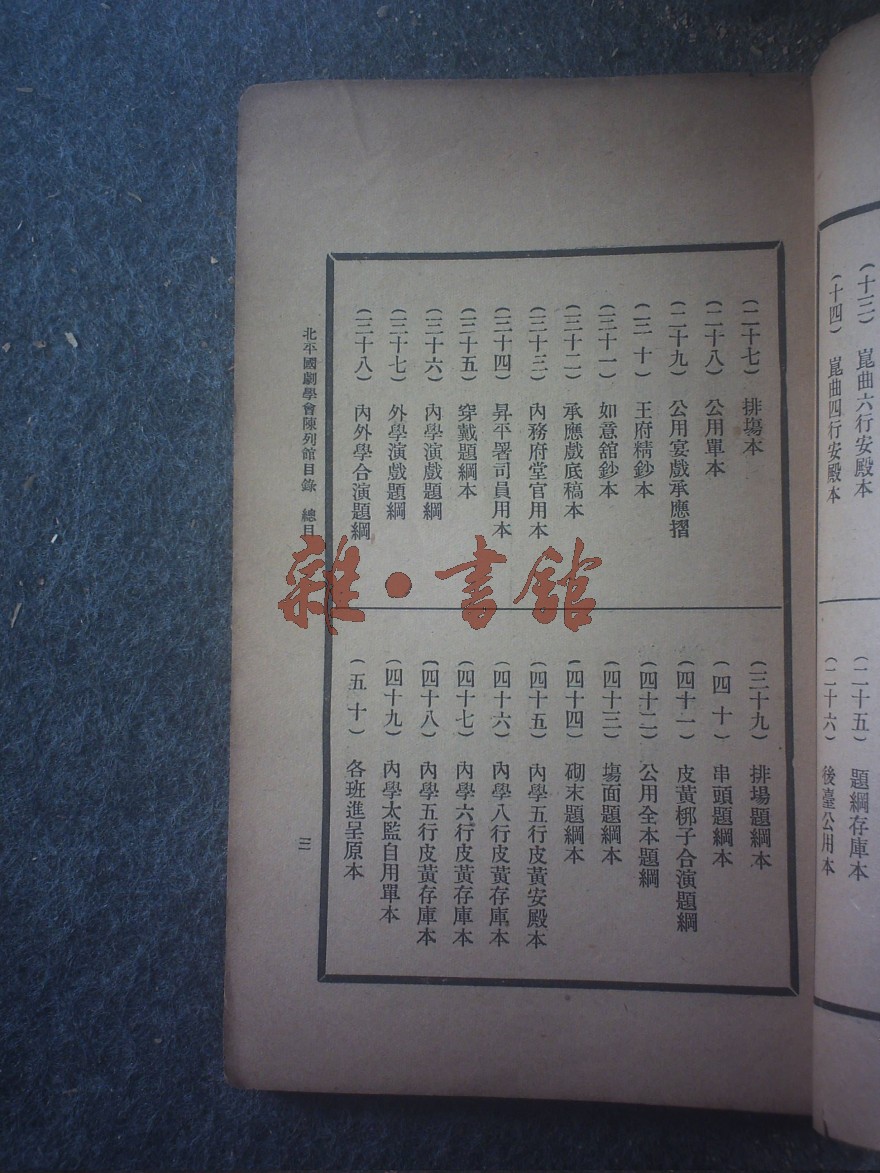 (十三) 崑曲六行安殿本
(十四) 崑曲四行安殿本
(二十五) 題綱存庫本
(二十六) 後臺公用本
(二十七) 排場本
(二十八) 公用單本
(二十九) 公用宴戲承應摺
(三十) 王府精鈔本
(三十一) 如意館鈔本
(三十二) 承應戲底稿本
(三十三) 內務府堂官用本
(三十四) 昇平署司員用本
(三十五) 穿戴題綱本
(三十六) 內學演戲題綱
(三十七) 外學演戲題綱
(三十八) 內外學合演題綱
(三十九) 排場題綱本
(四十) 串頭題綱本
(四十一) 皮黃梆子合演題綱
(四十二) 公用全本題綱
(四十三) 場面題綱本
(四十四) 砌末題綱本
(四十五) 內學五行皮黃安殿本
(四十六) 內學八行皮黃存庫本
(四十七) 內學六行皮黃存庫本
(四十八) 內學五行皮黃存庫本
(四十九) 內學太監自用單本
(五十) 各班進呈原本
北平國劇學會陳列館目錄 總目
三
雜·書館